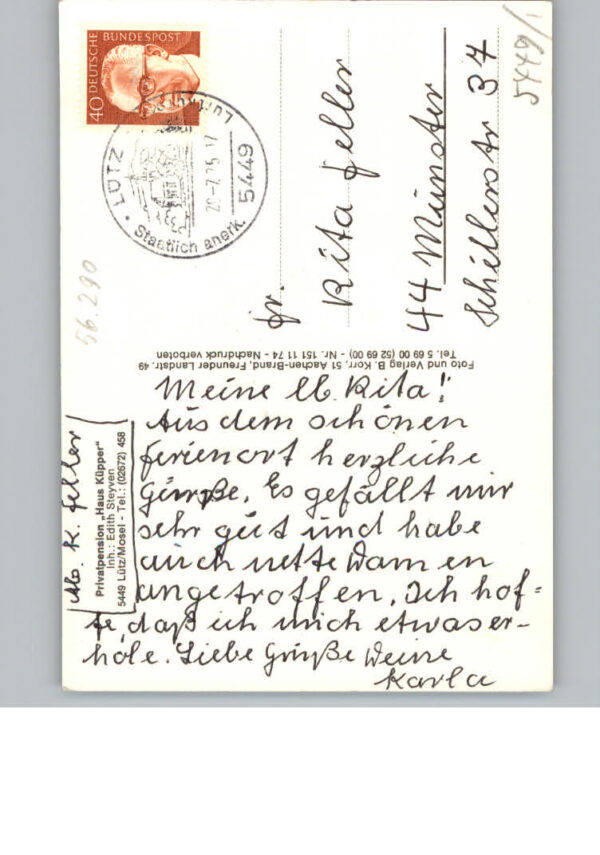 DEUTSCHE
BUNDESPOST
40
LÜTZ
Luftkurort
Staatlich anerk.
5449
5449/1
56.290
Fr.
Rita Feller
44 Münster
Schillerstr 34
Foto und Verlag B. Korr, 51 Aachen-Brand, Freunder Landstr. 49
Tel. 5 69 00 (52 69 00) - Nr. 151 11 74 - Nachdruck verboten
Meine lb. Rita!
Aus dem schönen
Ferienort herzliche
Grüße. Es gefällt mir
sehr gut und habe
auch nette Damen
angetroffen. Ich hof-
fe, daß ich mich etwas er-
hole. Liebe Grüße Deine
Karla
Ab. K. Feller
Privatpension „Haus Küpper"
Inh.: Edith Steyven
5449 Lütz/Mosel - Tel.: (02672) 458